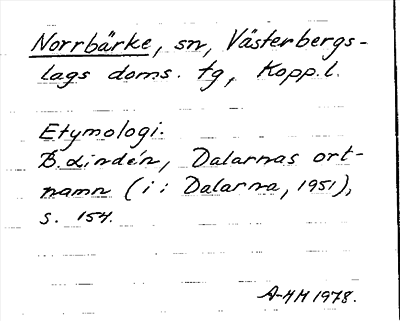 Norrbärke, sn, Västerbergs-
lags doms. tg, Kopp.l.
Etymologi.
B. Lindén, Dalarnas ort-
namn (i: Dalarna, 1951),
s. 154.
A-HH 1978.